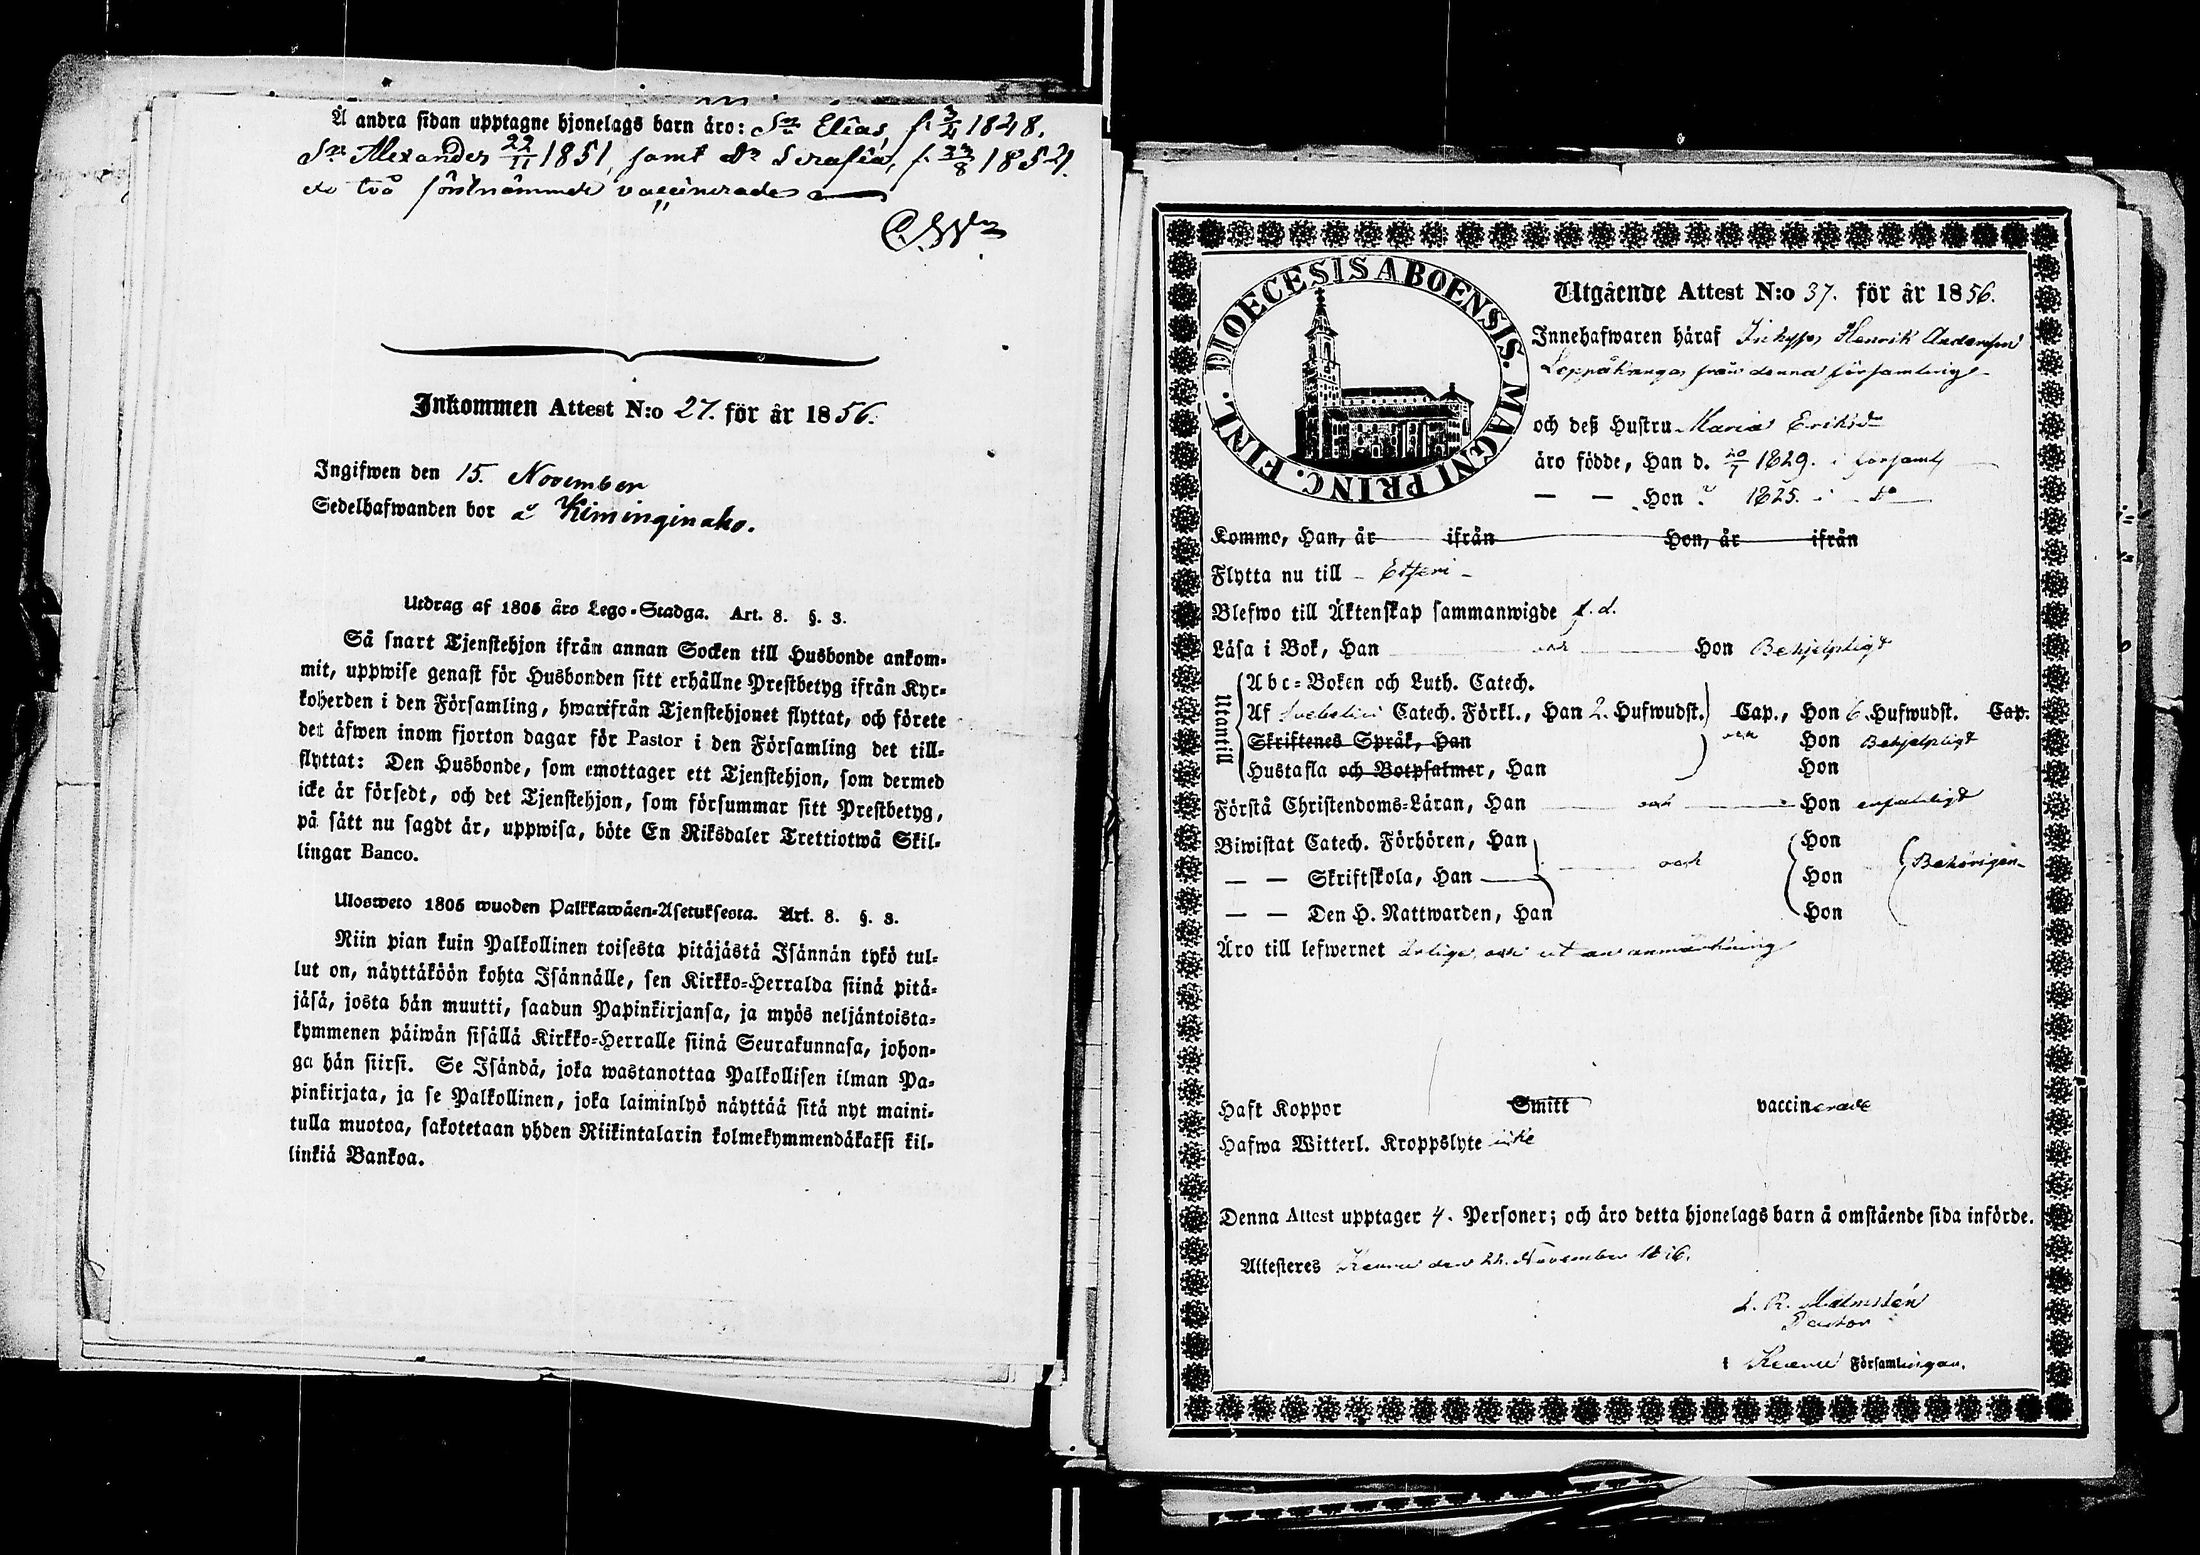 Å andra sidan upptagne hjonelags barn äro: Sn Elias, f. 3/4 1848.
Sn Alexander 22/11 1851, samt Dr Serafia, f. 23/8 1854.
de två förstnämnde vaccinerade
C.W
Inkommen Attest N:o 27. för år 1856.
Ingifwen den 15. November
Sedelhafwanden bor å Kiminginaho.
Utdrag af 1805 års Lego-Stadga. Art. 8. §. 3.
Så snart Tjenstehjon ifrån annan Socken till Husbonde ankom-
mit, uppwise genast för Husbonden sitt erhållne Prestbetyg ifrån Kyr-
koherden i den Församling, hwarifrån Tjenstehjonet flyttat, och förete
det äfwen inom fjorton dagar för Pastor i den Församling det till-
flyttat: Den Husbonde, som emottager ett Tjenstehjon, som dermed
icke är försedt, och det Tjenstehjon, som försummar sitt Prestbetyg,
på sätt nu sagdt är, uppwisa, böte En Riksdaler Trettiotwå Skil-
lingar Banco.
Ulosweto 1805 wuoden Palkkawäen-Asetuksesta. Art. 8. §. 3.
Niin pian kuin Palkollinen toisesta pitäjästä Isännän tykö tul-
lut on, näyttäköön kohta Isännälle, sen Kirkko-Herralda siinä pitä-
jäsä, josta hän muutti, saadun Papinkirjansa, ja myös neljäntoista-
kymmenen päiwän sisällä Kirkko-Herralle siinä Seurakunnasa, johon-
ga hän siirsi. Se Isändä, joka wastanottaa Palkollisen ilman Pa-
pinkirjata, ja se Palkollinen, joka laiminlyö näyttää sitä nyt maini-
tulla muotoa, sakotetaan yhden Riikintalarin kolmekymmendäkaksi kil-
linkiä Bankoa.
DIOECESIS ABOENSIS. MAGNI PRINC. FINL.
Utgående Attest N:o 37. för år 1856.
Innehafwaren häraf Inhyses Henrik Andersson
från denna församling
och deß Hustru Maria Eriksd
äro födde, Han d. 20/7 1829. i församl
— — Hon 1825. i do
Kommo, Han, år ifrån Hon, år ifrån
Flytta nu till - Etseri -
Blefwo till Äktenskap sammanwigde f. d.
Läsa i Bok, Han och Hon Behjelpligt
Utantill
Abc-Boken och Luth. Catech.
Af Svebelii Catech. Förkl., Han 2. Hufwudst. Cap., Hon 6. Hufwudst. Cap.
Skriftenes Språk, Han och Hon Behjelpligt
Hustafla och Botpsalmer, Han Hon
Förstå Christendoms-Läran, Han och Hon enfaldigt
Biwistat Catech. Förhören, Han Hon
— — Skriftskola, Han och Hon Behörigen
— — Den H. Nattwarden, Han Hon
Äro till lefwernet ärlige och utan anmärkning
Haft Koppor Smitt vaccinerade
Hafwa Witterl. Kroppslyte icke
Denna Attest upptager 4. Personer; och äro detta hjonelags barn å omstående sida införde.
Attesteres Keuru den 22. November 1856.
L. R. Malmstén
Pastor
i Keuru Församlingan.